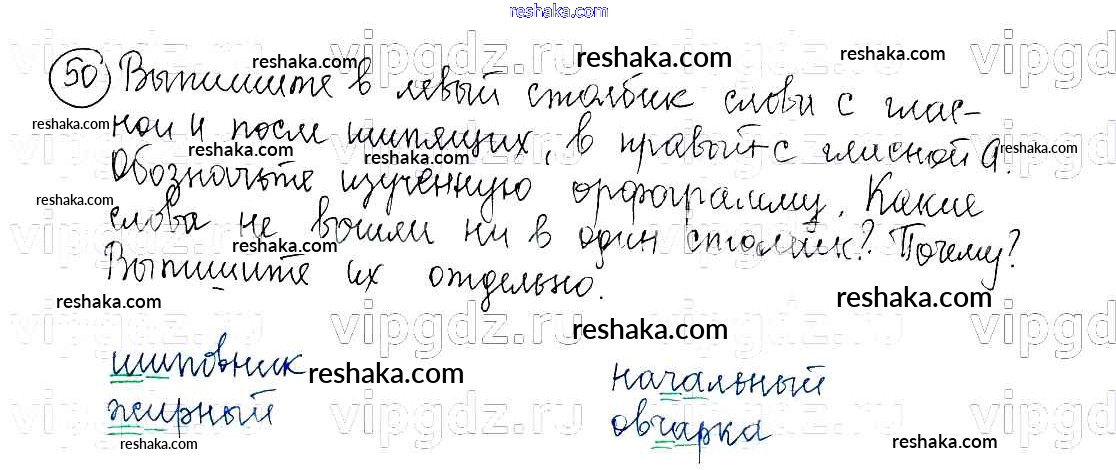 reshaka.com
50 Выпишите в левый столбик слова с глас-
ной и после шипящих, в правый - с гласной а.
Обозначьте изученную орфограмму. Какие
слова не вошли ни в один столбик? Почему?
Выпишите их отдельно.
шиповник начальный
жирный овчарка
vipgdz.ru
reshaka.com